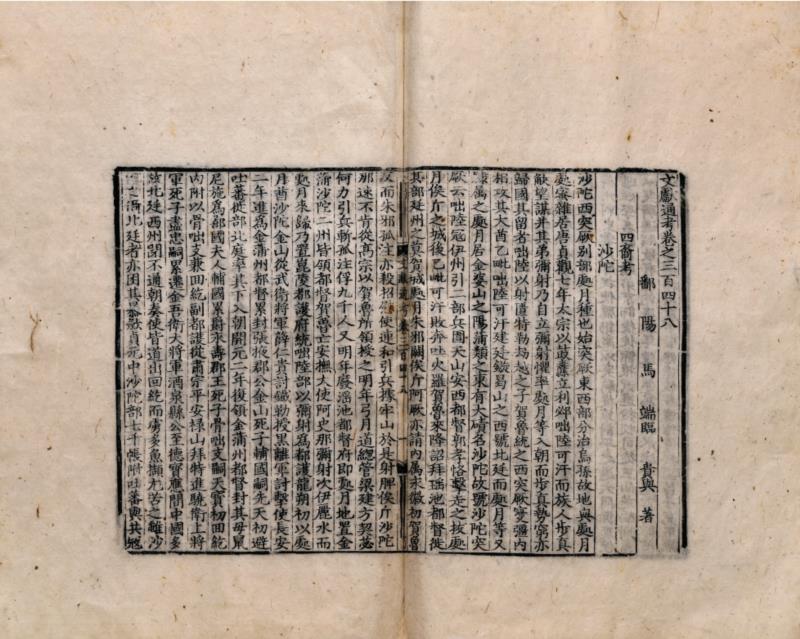 文獻通考卷之三百四十八
鄱陽馬端臨貴與著
四裔考
沙陀
沙陀西突厥別部處月種也始突厥東西部分治烏孫故地與處月
處蜜雜居唐貞觀七年太宗以鼓纛立利邲咄陸可汗而族人步真
觖望謀并其弟彌射乃自立彌射懼率處月等入朝而步真勢窮亦
歸國其留者咄陸以射匱特勒劫越之子賀魯統之西突厥寖彊內
相攻其大酋乙毗咄陸可汗建廷鏃曷山之西號北廷而處月等又
隸屬之處月居金娑山之陽蒲類之東有大磧名沙陀故號沙陀突
厥云咄陸寇伊州引二部兵圍天山安西都督郭孝恪擊走之拔處
月俟斤之城後乙毗可汗敗奔吐火羅賀魯來降詔拜瑤池都督徙
其部廷州之莫賀城處月朱邪闕俟斤阿厥亦請內屬永徽初賀魯
文獻通考卷三百四十八
反而朱邪孤注亦殺招慰使連和引兵據牢山於是射脾俟斤沙陀
那速不肯從高宗以賀魯所領授之明年弓月道總管梁建方契苾
何力引兵斬孤注俘九千人又明年廢瑤池都督府即處月地置金
蒲沙陀二州皆領都督賀魯亡安撫大使阿史那彌射次伊麗水而
處月來歸乃置崑陵都護府統咄陸部以彌射為都護龍朔初以處
月酋沙陀金山從武衛將軍薛仁貴討鐵勒授墨離軍討擊使長安
二年進為金蒲州都督累封張掖郡公金山死子輔國嗣先天初避
吐蕃徙部北庭率其下入朝開元二年復領金蒲州都督封其母鼠
尼施為鄯國夫人輔國累爵永壽郡王死子骨咄支嗣天寶初回紇
內附以骨咄支兼回紇副都護從肅宗平安祿山拜特進驍衛上將
軍死子盡忠嗣累遷金吾衛大將軍酒泉縣公至德寶應間中國多
故北廷西州閉不通朝奏使皆道出回紇而虜多漁擷尤苦之雖沙
北廷者亦困其暴斂貞元中沙陀部七千帳附吐蕃與共寇